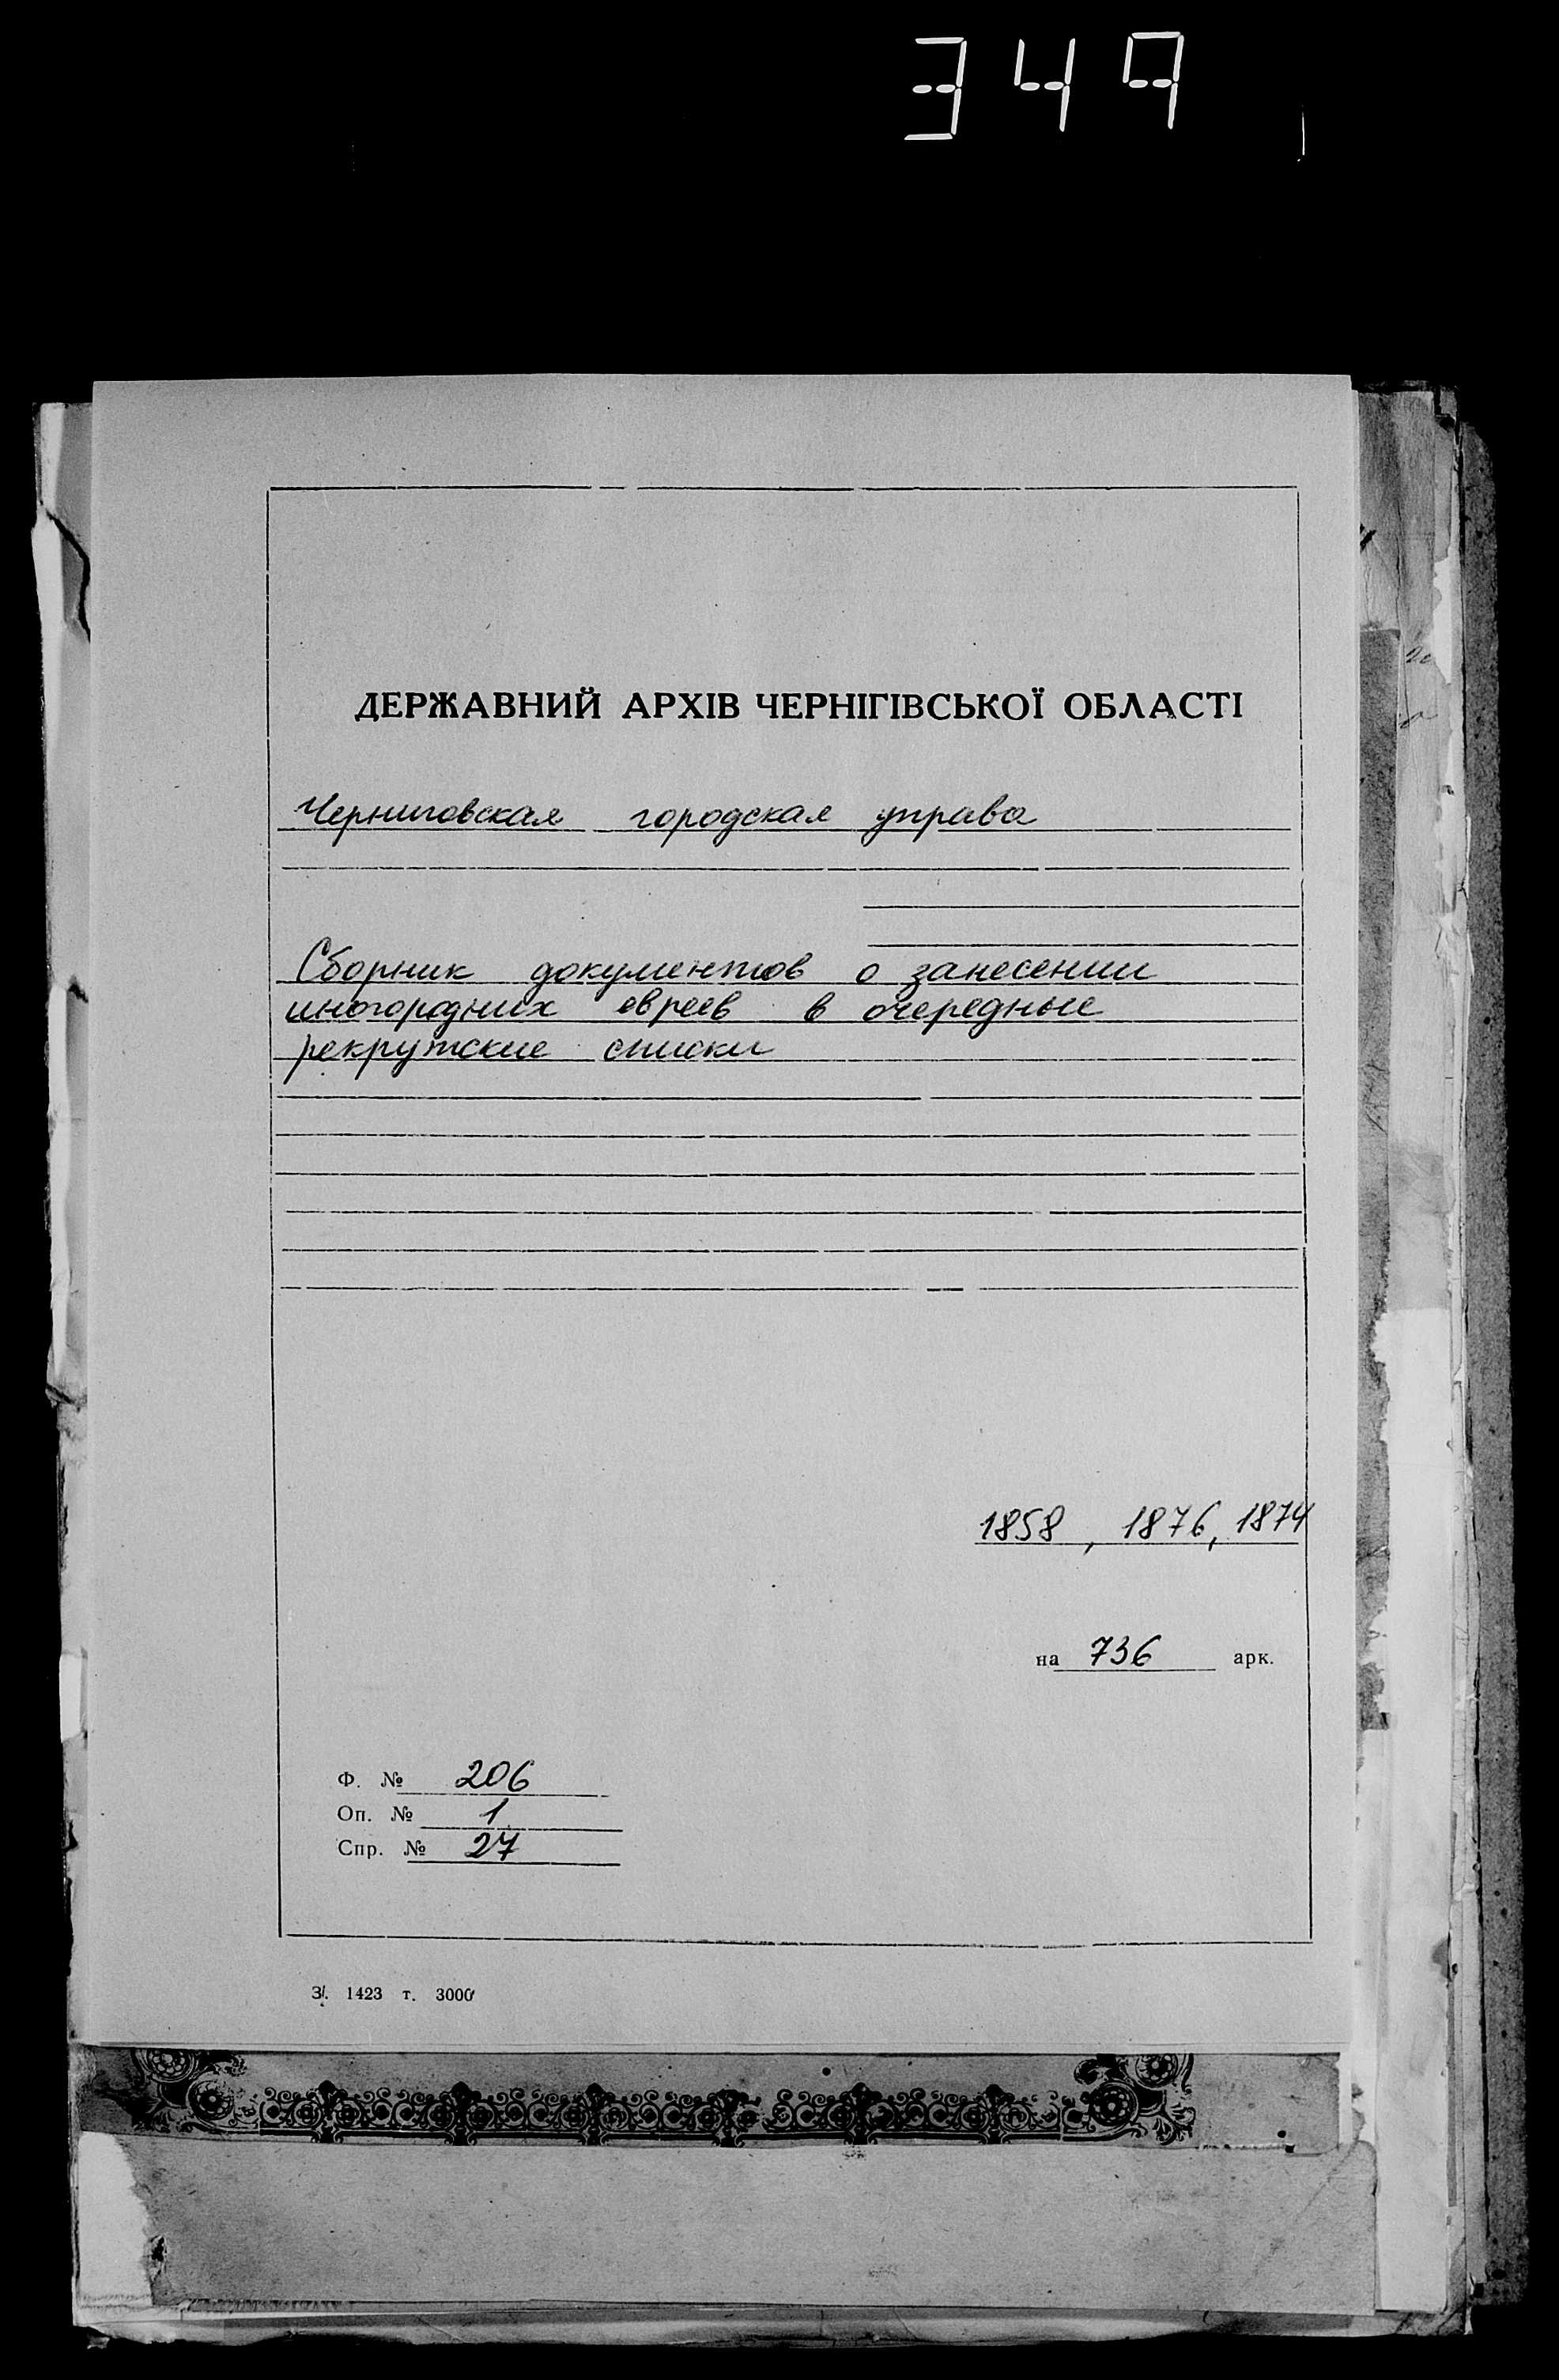 349
ДЕРЖАВНИЙ АРХІВ ЧЕРНІГІВСЬКОЇ ОБЛАСТІ
Черниговская городская управа
Сборник документов о занесении
иногородних евреев в очередные
рекрутские списки
1858, 1876, 1874
на 736 арк.
Ф. № 206
Оп. № 1
Спр. № 27
З. 1423 т. 3000